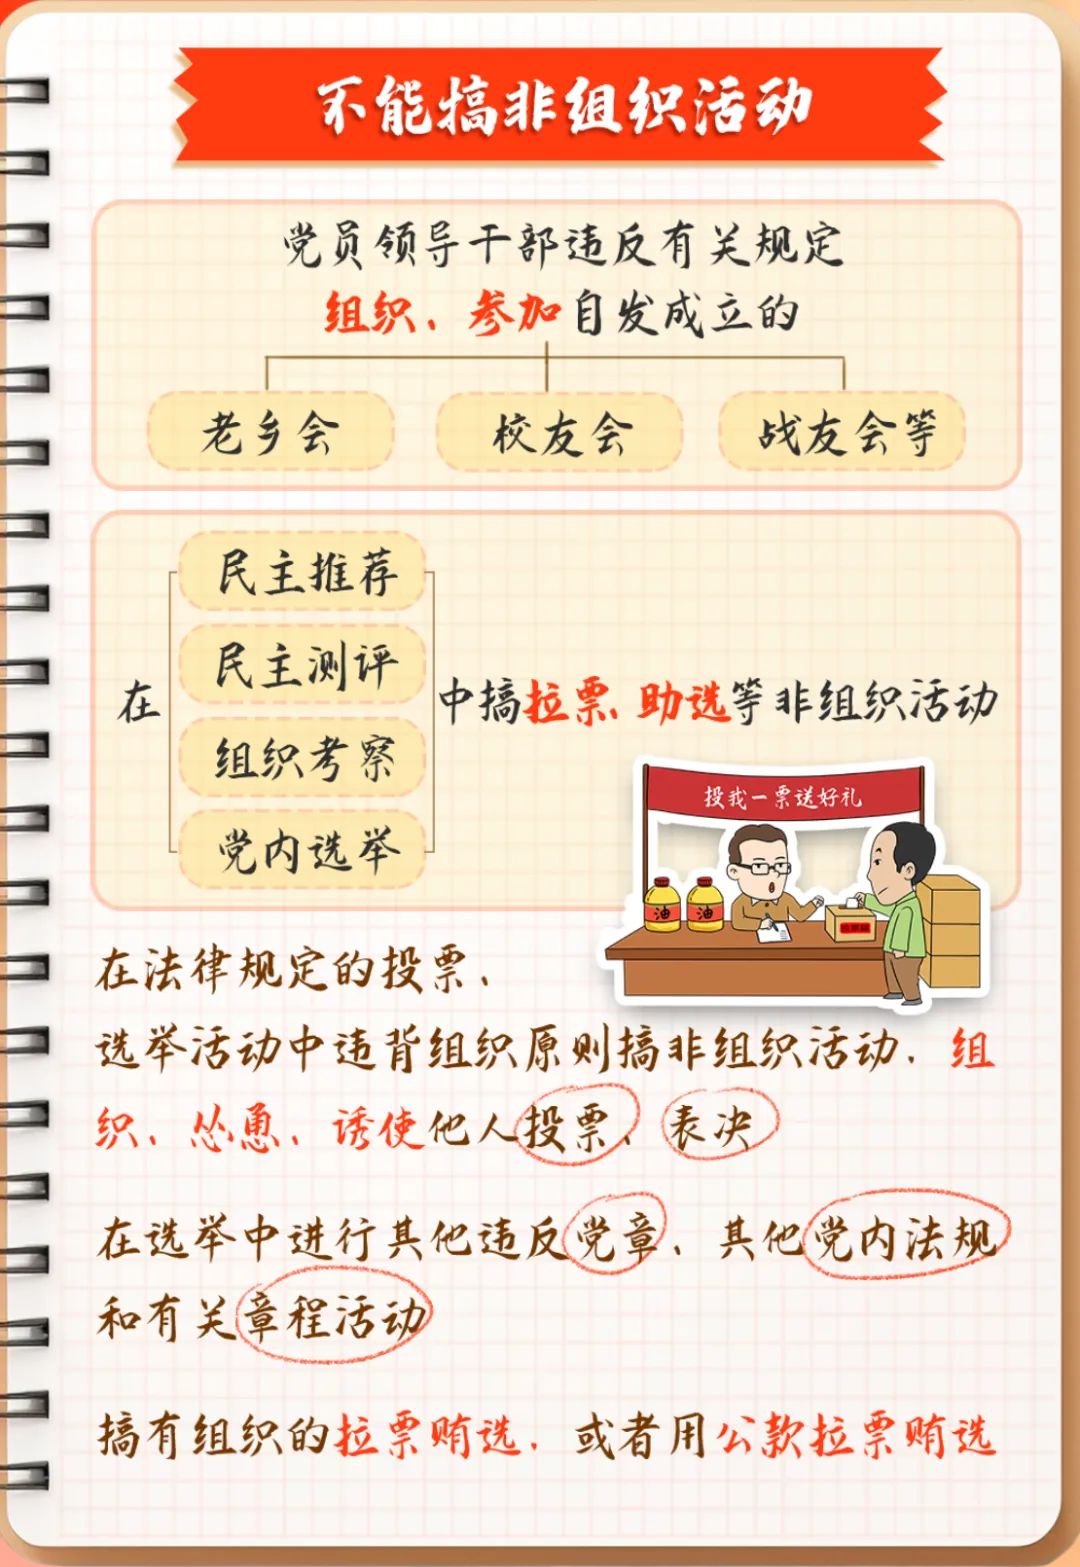 不能搞非组织活动
党员领导干部违反有关规定
组织、参加自发成立的
老乡会
校友会
战友会等
在
民主推荐
民主测评
组织考察
党内选举
中搞拉票、助选等非组织活动
投我一票送好礼
油
油
投票箱
在法律规定的投票、
选举活动中违背组织原则搞非组织活动，组
织、怂恿、诱使他人投票、表决
在选举中进行其他违反党章、其他党内法规
和有关章程活动
搞有组织的拉票贿选，或者用公款拉票贿选